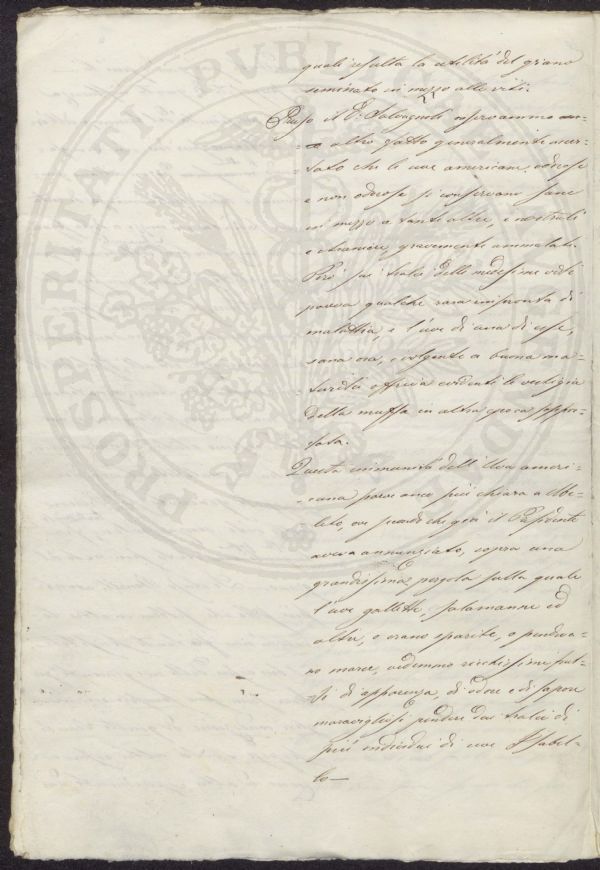 quali risulta la utilità del grano
seminato in mezzo alle viti.
Presso il D. Salvagnoli osservammo un-
-a altro fatto generalmente accer-
-tato che le uve americane, odorose
e non odorose si conservano sane
in mezzo a tante altre, e nostrali
e straniere, gravemente ammalate.
Però sui tralci delle medesime viti
pareva qualche rara impronta di
malattia, e l'uva di una di esse,
sana ora, e volgente a buona ma-
-turità offriva evidenti le vestigia
della muffa in altra epoca soppor-
-tata.
Questa immunità dell'Uva ameri-
-cana parve anco più chiara a
ove secondo che già il Presidente
aveva annunziato, sopra una
grandissima pergola sulla quale
l'uve gallette, salamanne ed
altre, o erano sparite, o pendeva-
no marce, vedemmo ricchissimi frut-
-ti di apparenza, di odore e di sapore
maravigliosi pendere dai tralci di
più individui di uve Isabel-
-la—
PROSPERITATI PVBLICAE AVGENDAE